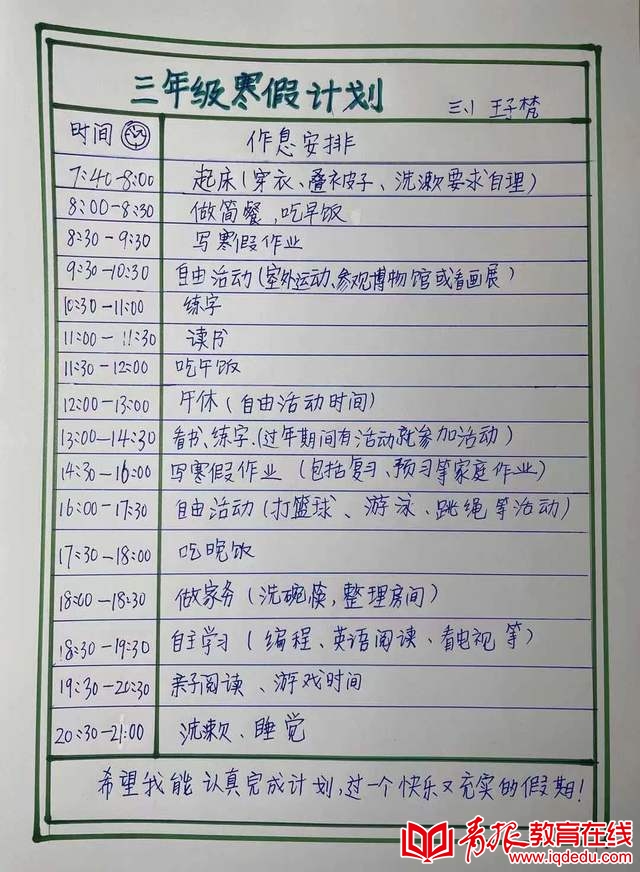 三年级寒假计划
三.1 王子梵
时间 作息安排
7:40-8:00 起床(穿衣、叠被子、洗漱要求自理)
8:00-8:30 做简餐,吃早饭
8:30-9:30 写寒假作业
9:30-10:30 自由活动(室外运动、参观博物馆或看画展)
10:30-11:00 练字
11:00-11:30 读书
11:30-12:00 吃午饭
12:00-13:00 午休(自由活动时间)
13:00-14:30 看书、练字.(过年期间有活动就参加活动)
14:30-16:00 写寒假作业(包括复习、预习等家庭作业)
16:00-17:30 自由活动(打篮球、游泳、跳绳等活动)
17:30-18:00 吃晚饭
18:00-18:30 做家务(洗碗筷,整理房间)
18:30-19:30 自主学习(编程、英语阅读、看电视等)
19:30-20:30 亲子阅读、游戏时间
20:30-21:00 洗漱、睡觉
希望我能认真完成计划,过一个快乐又充实的假期!
青报教育在线
www.iqdedu.com